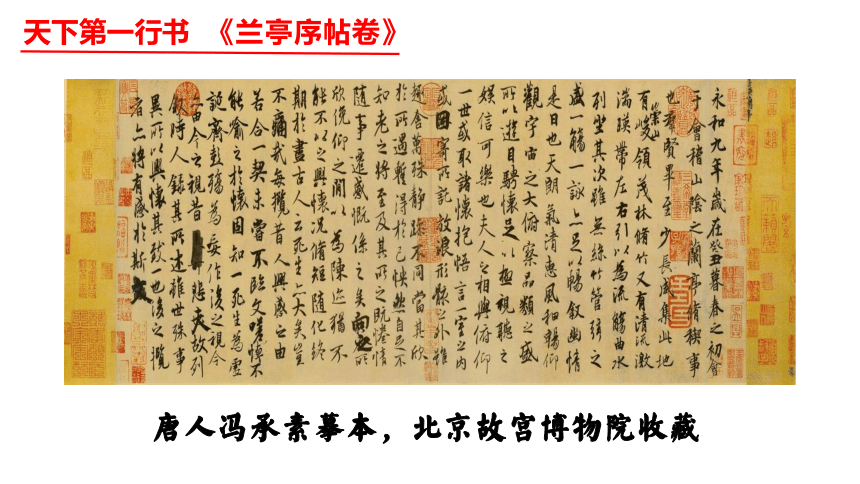 天下第一行书 《兰亭序帖卷》
永和九年歲在癸丑暮春之初會
于會稽山陰之蘭亭脩稧事
也羣賢畢至少長咸集此地
有崇山峻領茂林脩竹又有清流激
湍暎帶左右引以為流觴曲水
列坐其次雖無絲竹管弦之
盛一觴一詠亦足以暢叙幽情
是日也天朗氣清惠風和暢仰
觀宇宙之大俯察品類之盛
所以遊目騁懷足以極視聽之
娛信可樂也夫人之相與俯仰
一世或取諸懷抱悟言一室之內
或因寄所託放浪形骸之外雖
趣舍萬殊靜躁不同當其欣
於所遇蹔得於己怏然自足不
知老之將至及其所之既惓情
隨事遷感慨係之矣向之所
欣俛仰之間以為陳迹猶不
能不以之興懷況脩短隨化終
期於盡古人云死生亦大矣豈
不痛哉每攬昔人興感之由
若合一契未嘗不臨文嗟悼不
能喻之於懷固知一死生為虛
誕齊彭殤為妄作後之視今
亦由今之視昔悲夫故列
叙時人錄其所述雖世殊事
異所以興懷其致一也後之攬
者亦將有感於斯文
唐人冯承素摹本，北京故宫博物院收藏